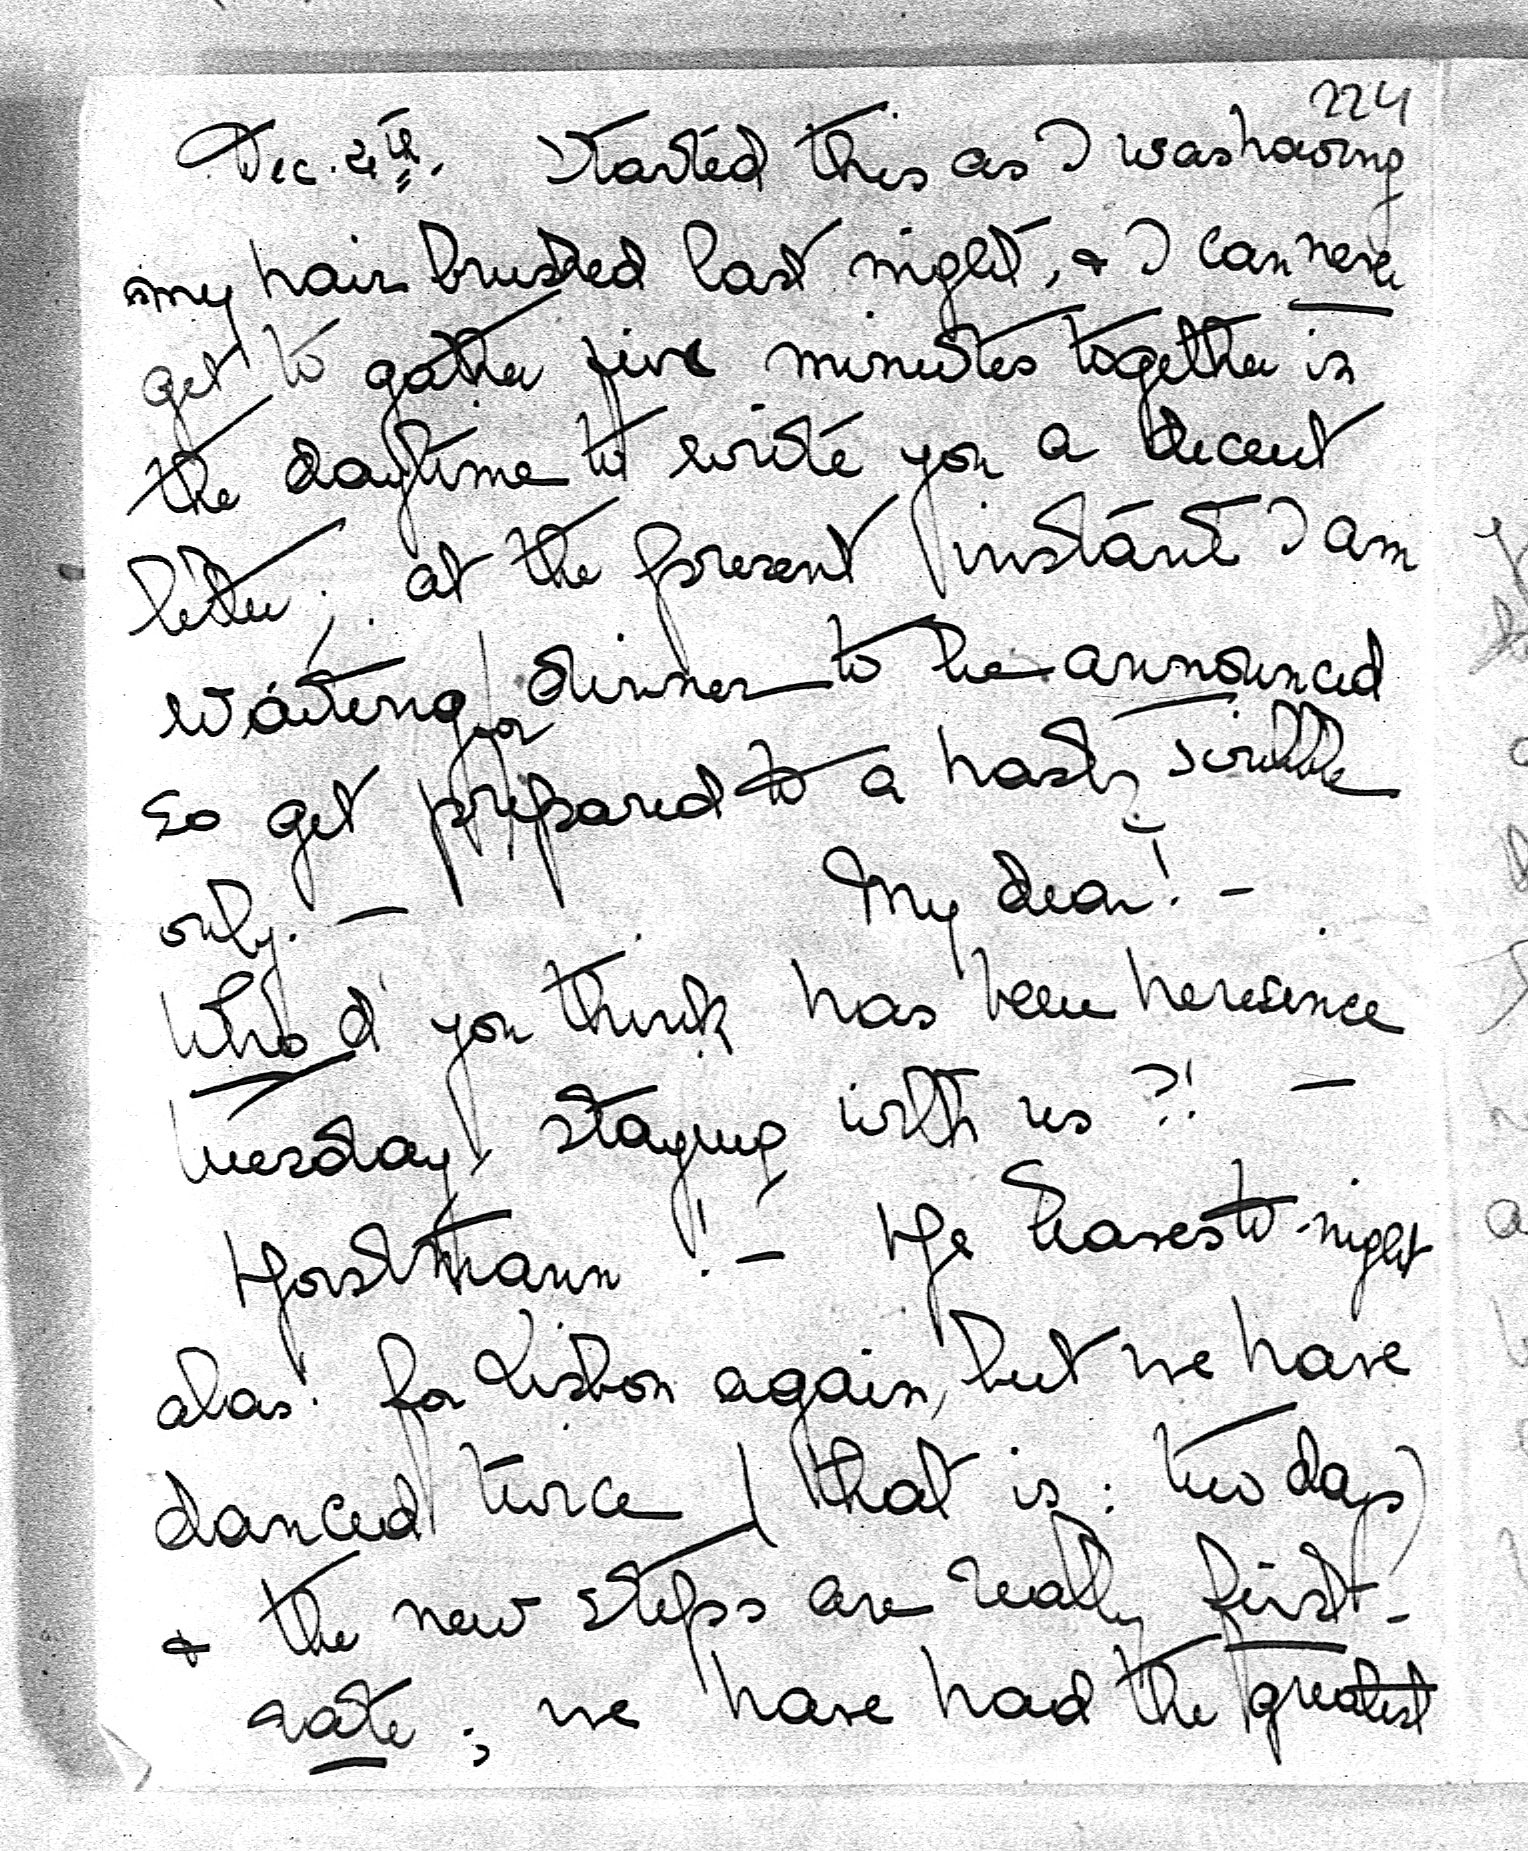 224
Dec. 4th. Started this as I was having
my hair brushed last night, & I can never
get to gather five minutes together in
the daytime to write you a decent
letter; at the present instant I am
waiting for dinner to be announced
so get prepared to a hasty scribble
only. — My dear! —
Who d' you think has been here since
Tuesday, staying with us?! —
Horstmann! — He leaves to-night
alas! for Lisbon again, but we have
danced twice (that is: two days)
& the new steps are really first-
rate; we have had the greatest